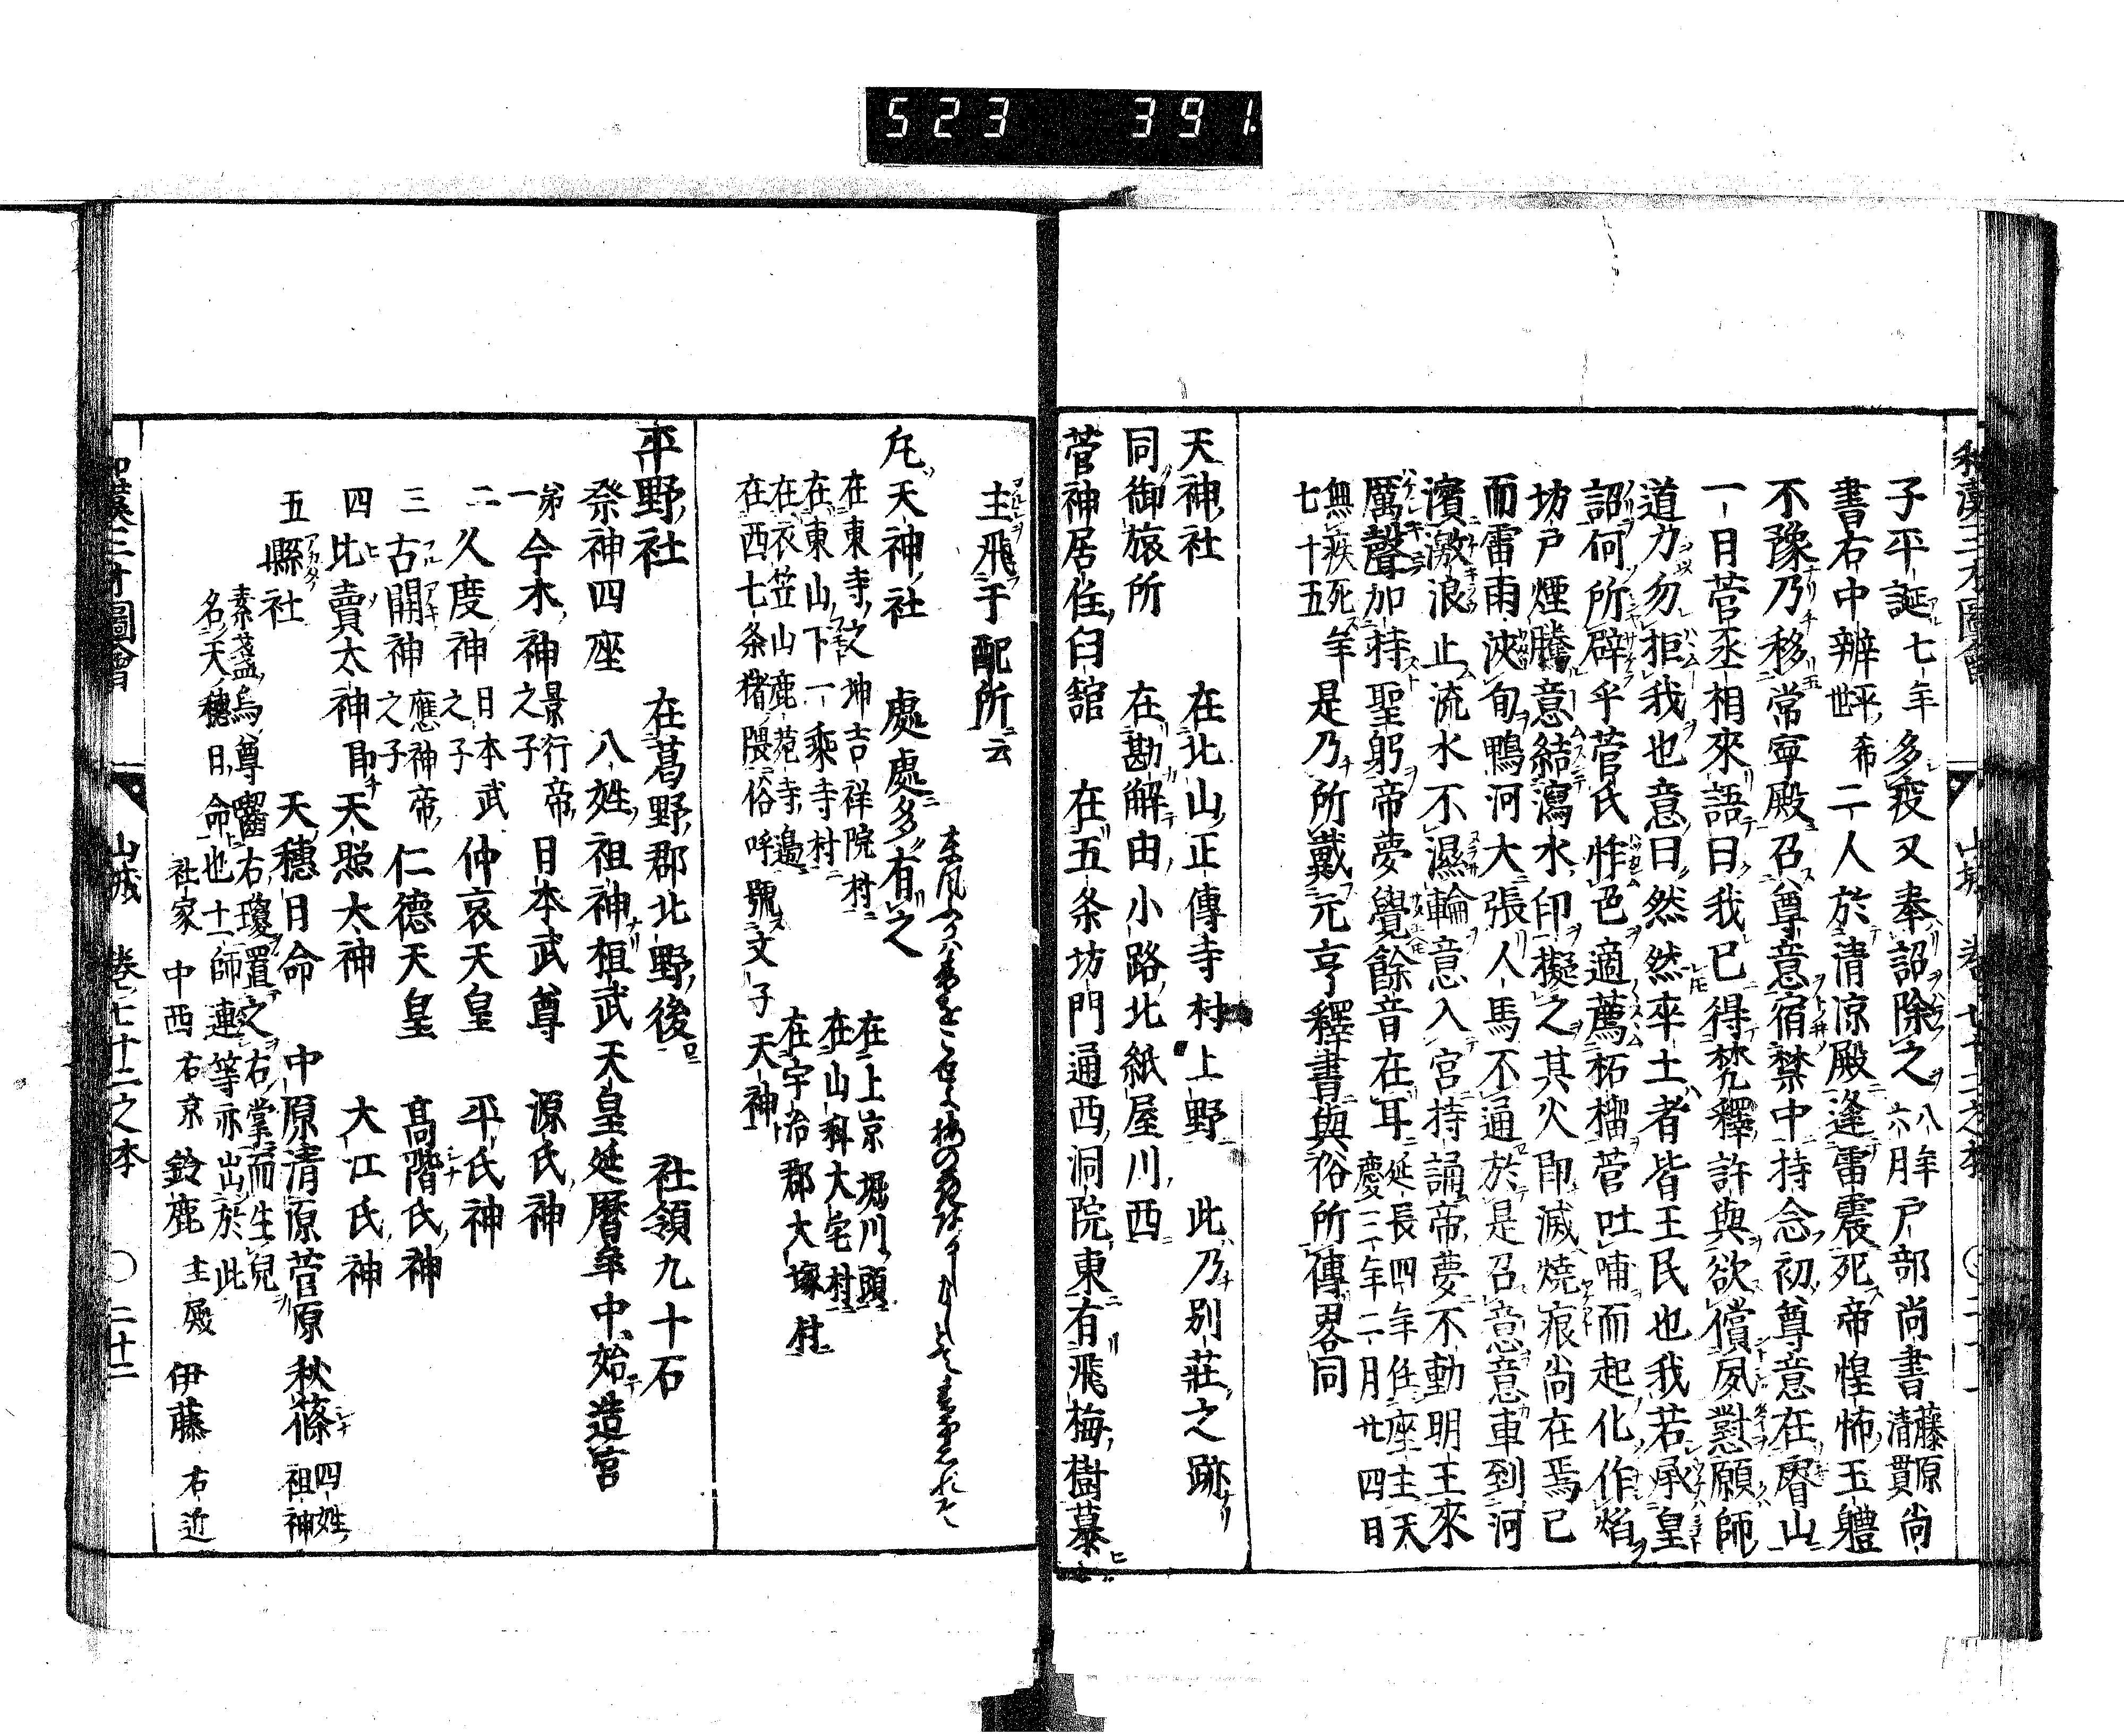 523 391.
和漢三才圖會 山城 卷七十二之本 ○二十一
子平誕七年多疫又奉詔除之八年六月戸部尚書藤原清貫尚
書右中辨平希世二人於清涼殿逢雷震死帝惶怖玉軆
不豫乃移常寧殿召尊意宿禁中持念初尊意在睿山
一日菅丞相來語曰我已得梵釋許與欲償夙懟願師
道力勿拒我也意曰然然率土者皆王民也我若承皇
詔何所辟乎菅氏怍色適薦柘榴菅吐哺而起化作焰
坊戸煙騰意結瀉水印擬之其火即滅燒痕尚在焉已
而雷雨浹旬鴨河大張人馬不通於是召意意車到河
濱激浪止流水不濕輪意入宮持誦帝夢不動明王來
厲聲加持聖躬帝夢覺餘音在耳延長四年任座主天慶三年二月廿四日
無疾死年七十五 是乃所載元亨釋書與俗所傳畧同
天神社 在北山正傳寺村上野 此乃別莊之跡
同御旅所 在勘解由小路北紙屋川西
菅神居住臼舘 在五条坊門通西洞院東有飛梅樹慕
主飛于配所云
凡天神社 處處多有之
在東寺之坤吉祥院村 在上京堀川頭
在東山下一乘寺村 在山科大宅村
在衣笠山鹿苑寺邉 在宇治郡大塚村
在西七条猪隈俗呼號文子天神
平野社 在葛野郡北野後 社領九十石
祭神四座 八姓祖神桓武天皇延暦年中始造宮
第一今木神景行帝之子日本武尊 源氏神
二久度神日本武之子仲哀天皇 平氏神
三古開神應神帝之子仁德天皇 髙階氏神
四比賣太神即天照太神 大江氏神
五縣社 天穗日命 中原清原菅原秋篠四姓祖神
素盞烏尊囓右瓊置之右掌而生兒
名天穗日命也土師連等亦出於此
社家 中西右京 鈴鹿主殿 伊藤右近
和漢三才圖會 山城 卷七十二之本 ○二十二